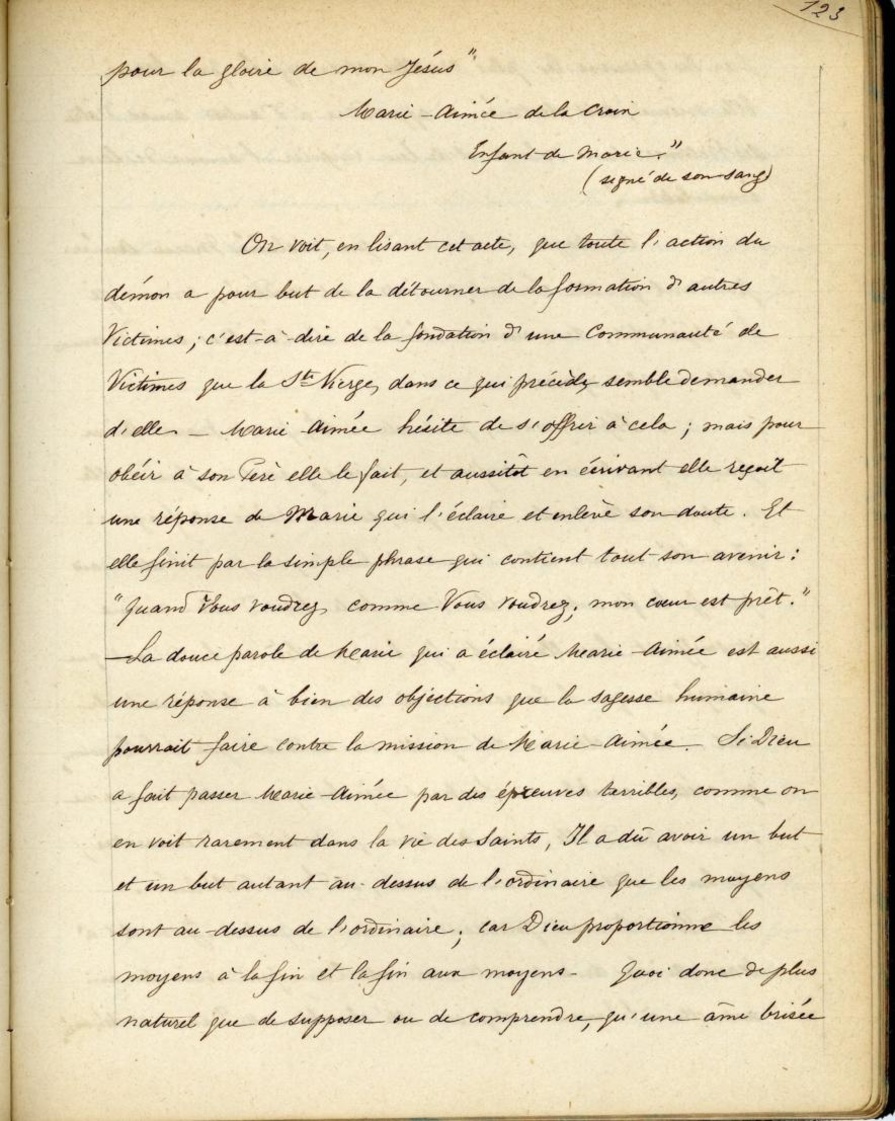 123
pour la gloire de mon Jésus"
Marie-Aimée de la Croix
Enfant de Marie."
(signé de son sang)
On voit, en lisant cet acte, que toute l'action du
démon a pour but de la détourner de la formation d'autres
Victimes ; c'est-à-dire de la fondation d'une Communauté de
Victimes que la Ste Vierge, dans ce qui précède, semble demander
d'elle. — Marie Aimée hésite de s'offrir à cela ; mais pour
obéir à son Père elle le fait, et aussitôt en écrivant elle reçoit
une réponse de Marie qui l'éclaire et enlève son doute. Et
elle finit par la simple phrase qui contient tout son avenir :
"Quand Vous voudrez, comme Vous voudrez, mon cœur est prêt."
— La douce parole de Marie qui a éclairé Marie-Aimée est aussi
une réponse à bien des objections que la sagesse humaine
pourrait faire contre la mission de Marie-Aimée. Si Dieu
a fait passer Marie-Aimée par des épreuves terribles, comme on
en voit rarement dans la vie des Saints, Il a dû avoir un but
et un but autant au-dessus de l'ordinaire que les moyens
sont au-dessus de l'ordinaire ; car Dieu proportionne les
moyens à la fin et la fin aux moyens - Quoi donc de plus
naturel que de supposer ou de comprendre, qu'une âme brisée